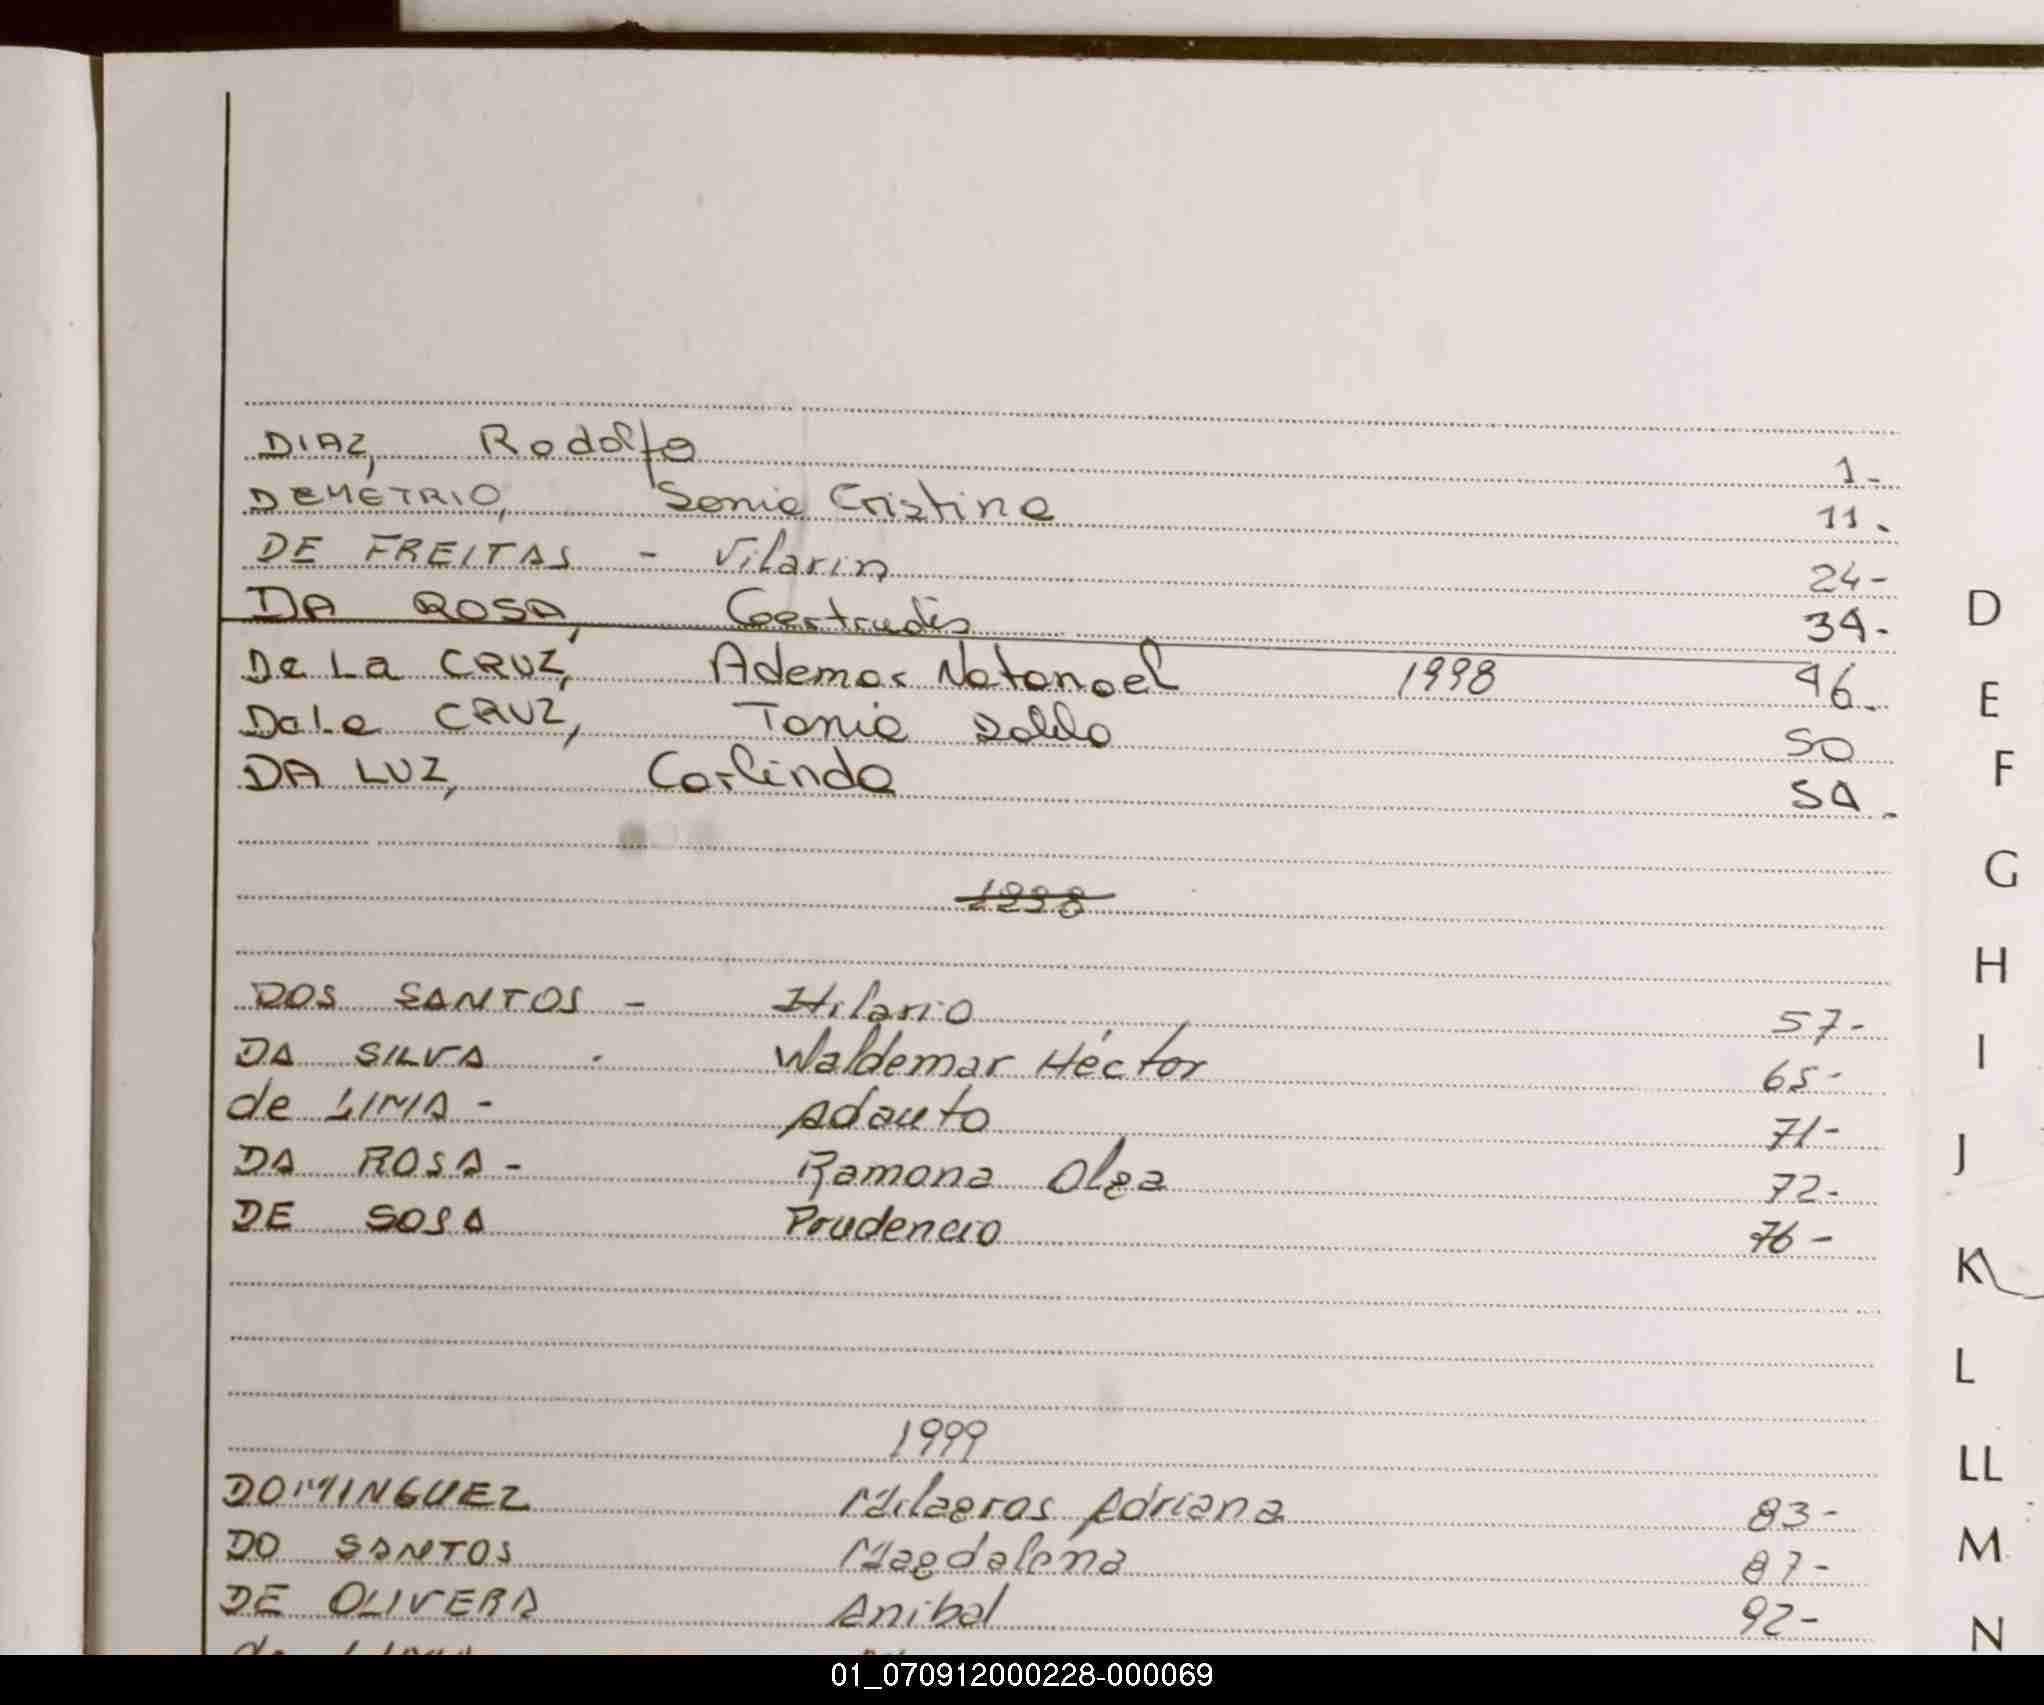 DIAZ, Rodolfo 1-
DEMETRIO, Sonia Cristina 11.
DE FREITAS - Vilarin 24-
DA ROSA, Gertrudis 34.
De La CRUZ, Ademar Natanael 1998 46.
De La CRUZ, Tania 50
DA LUZ, Carlinda 54.
1998
DOS SANTOS - Hilario 57-
DA SILVA - Waldemar Héctor 65-
de LIMA - Adauto 71-
DA ROSA - Ramona Olga 72-
DE SOSA Prudencio 76-
1999
DOMINGUEZ Milagros Adriana 83-
DO SANTOS Magdalena 87-
DE OLIVERA Anibal 92-
D
E
F
G
H
I
J
K
L
LL
M
N
01_070912000228-000069